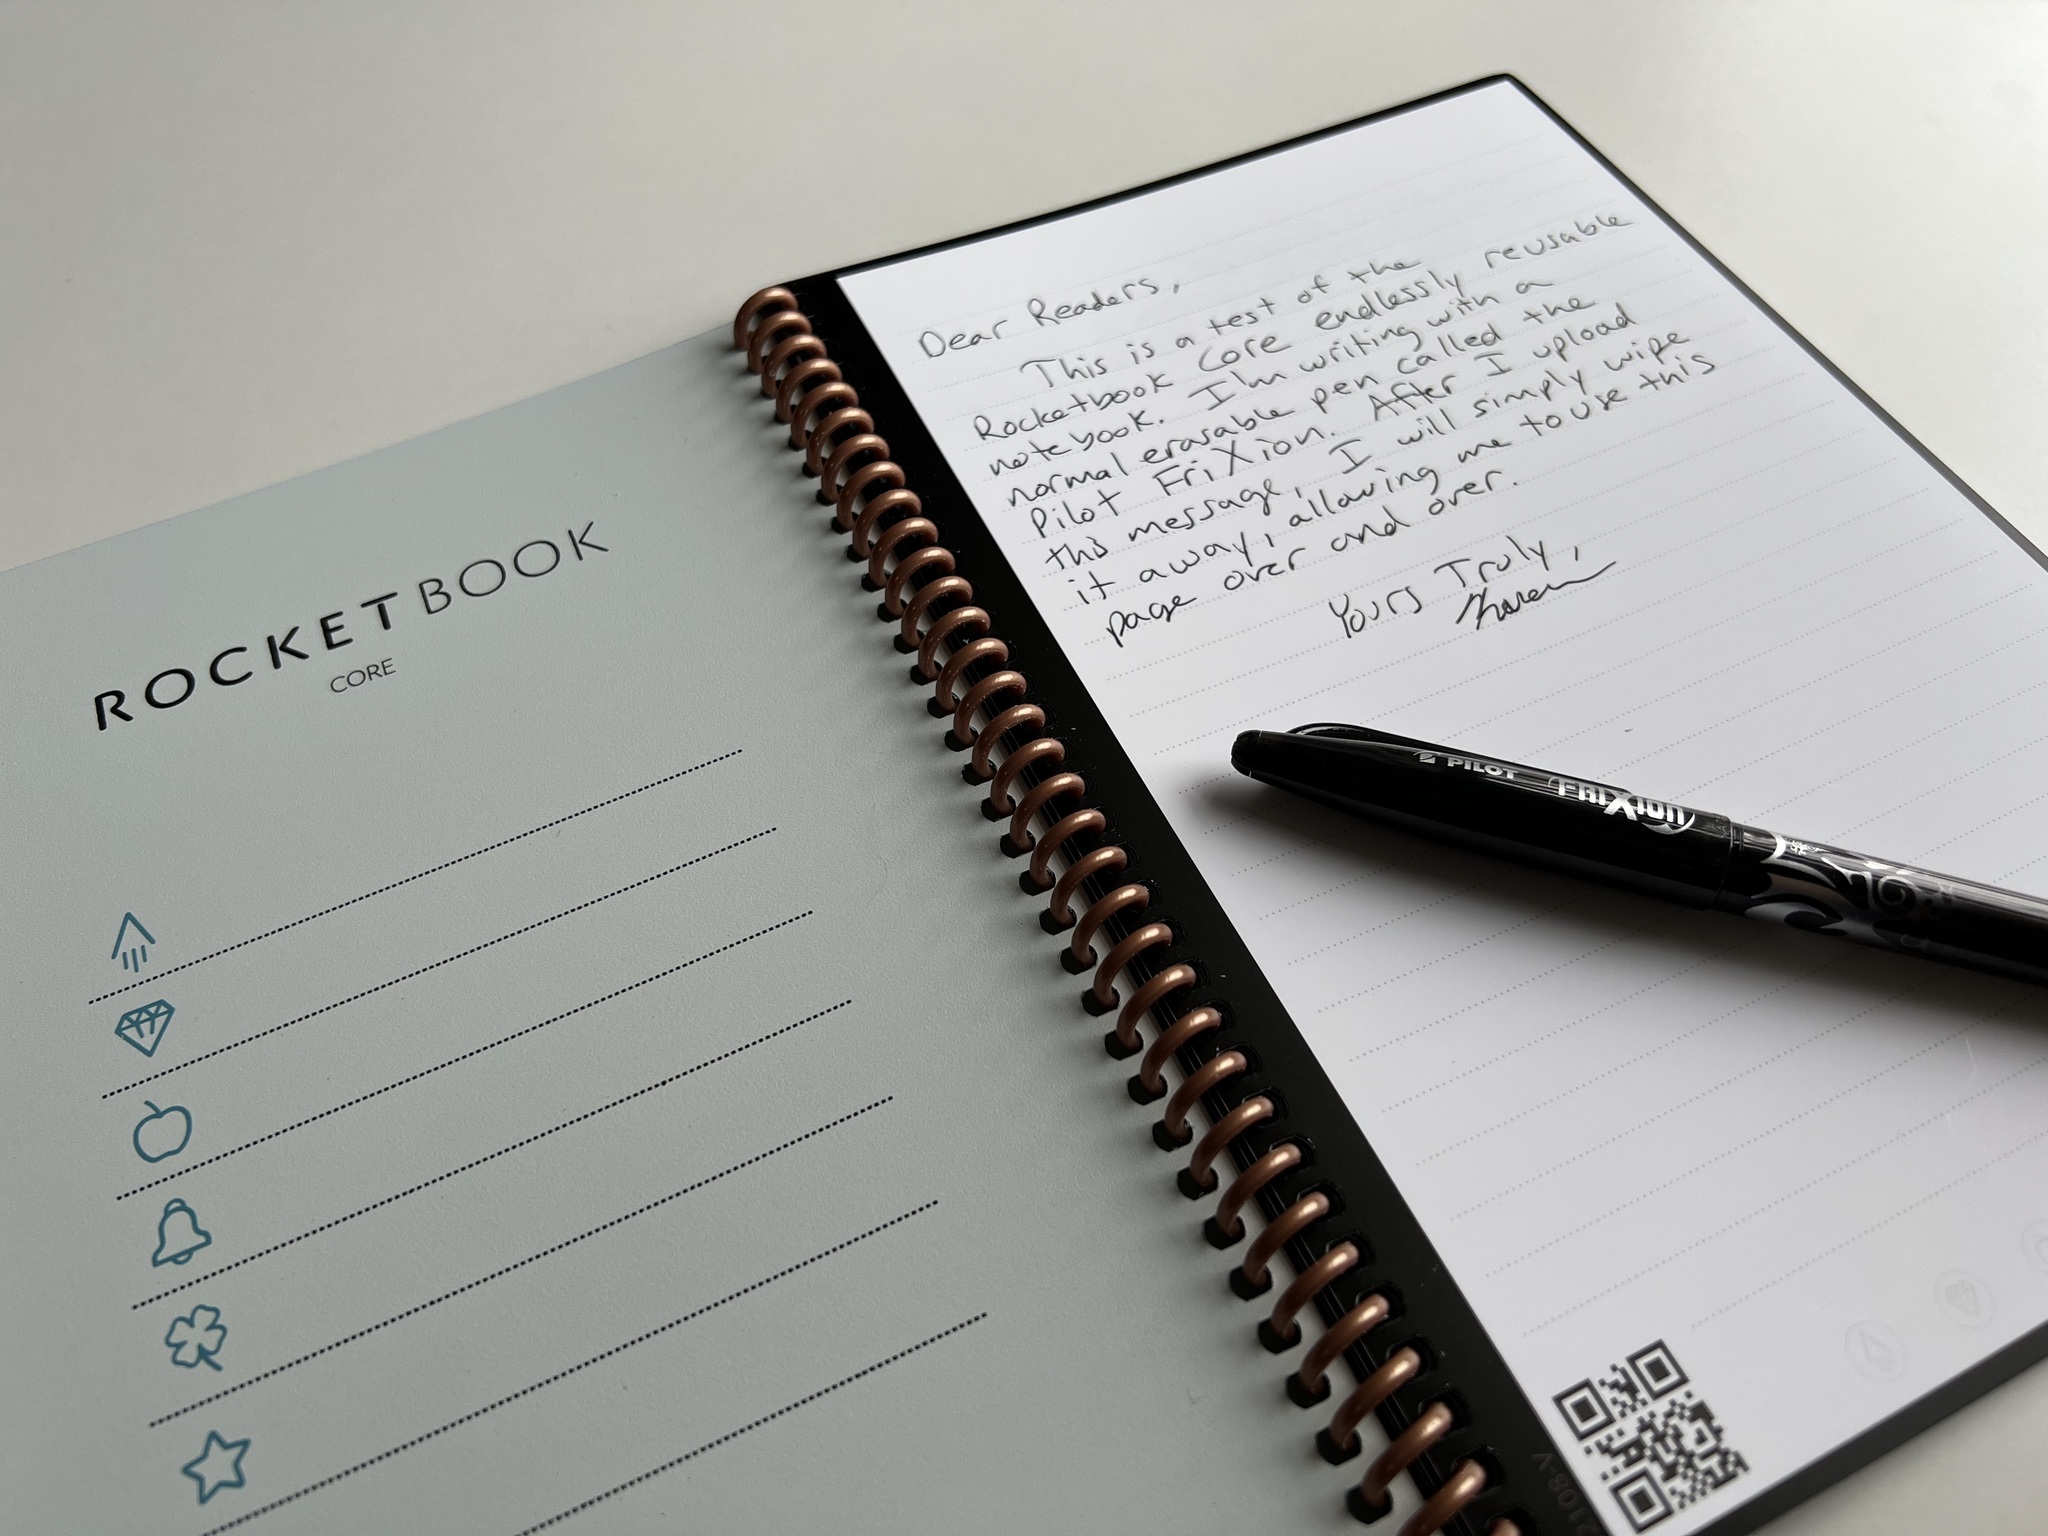 ROCKETBOOK
CORE
Dear Readers,
This is a test of the
Rocketbook Core endlessly reusable
notebook. I'm writing with a
normal erasable pen called the
Pilot FriXion. After I upload
this message, I will simply wipe
it away, allowing me to use this
page over and over.
Yours Truly,
PILOT
FRIXION
2108-V